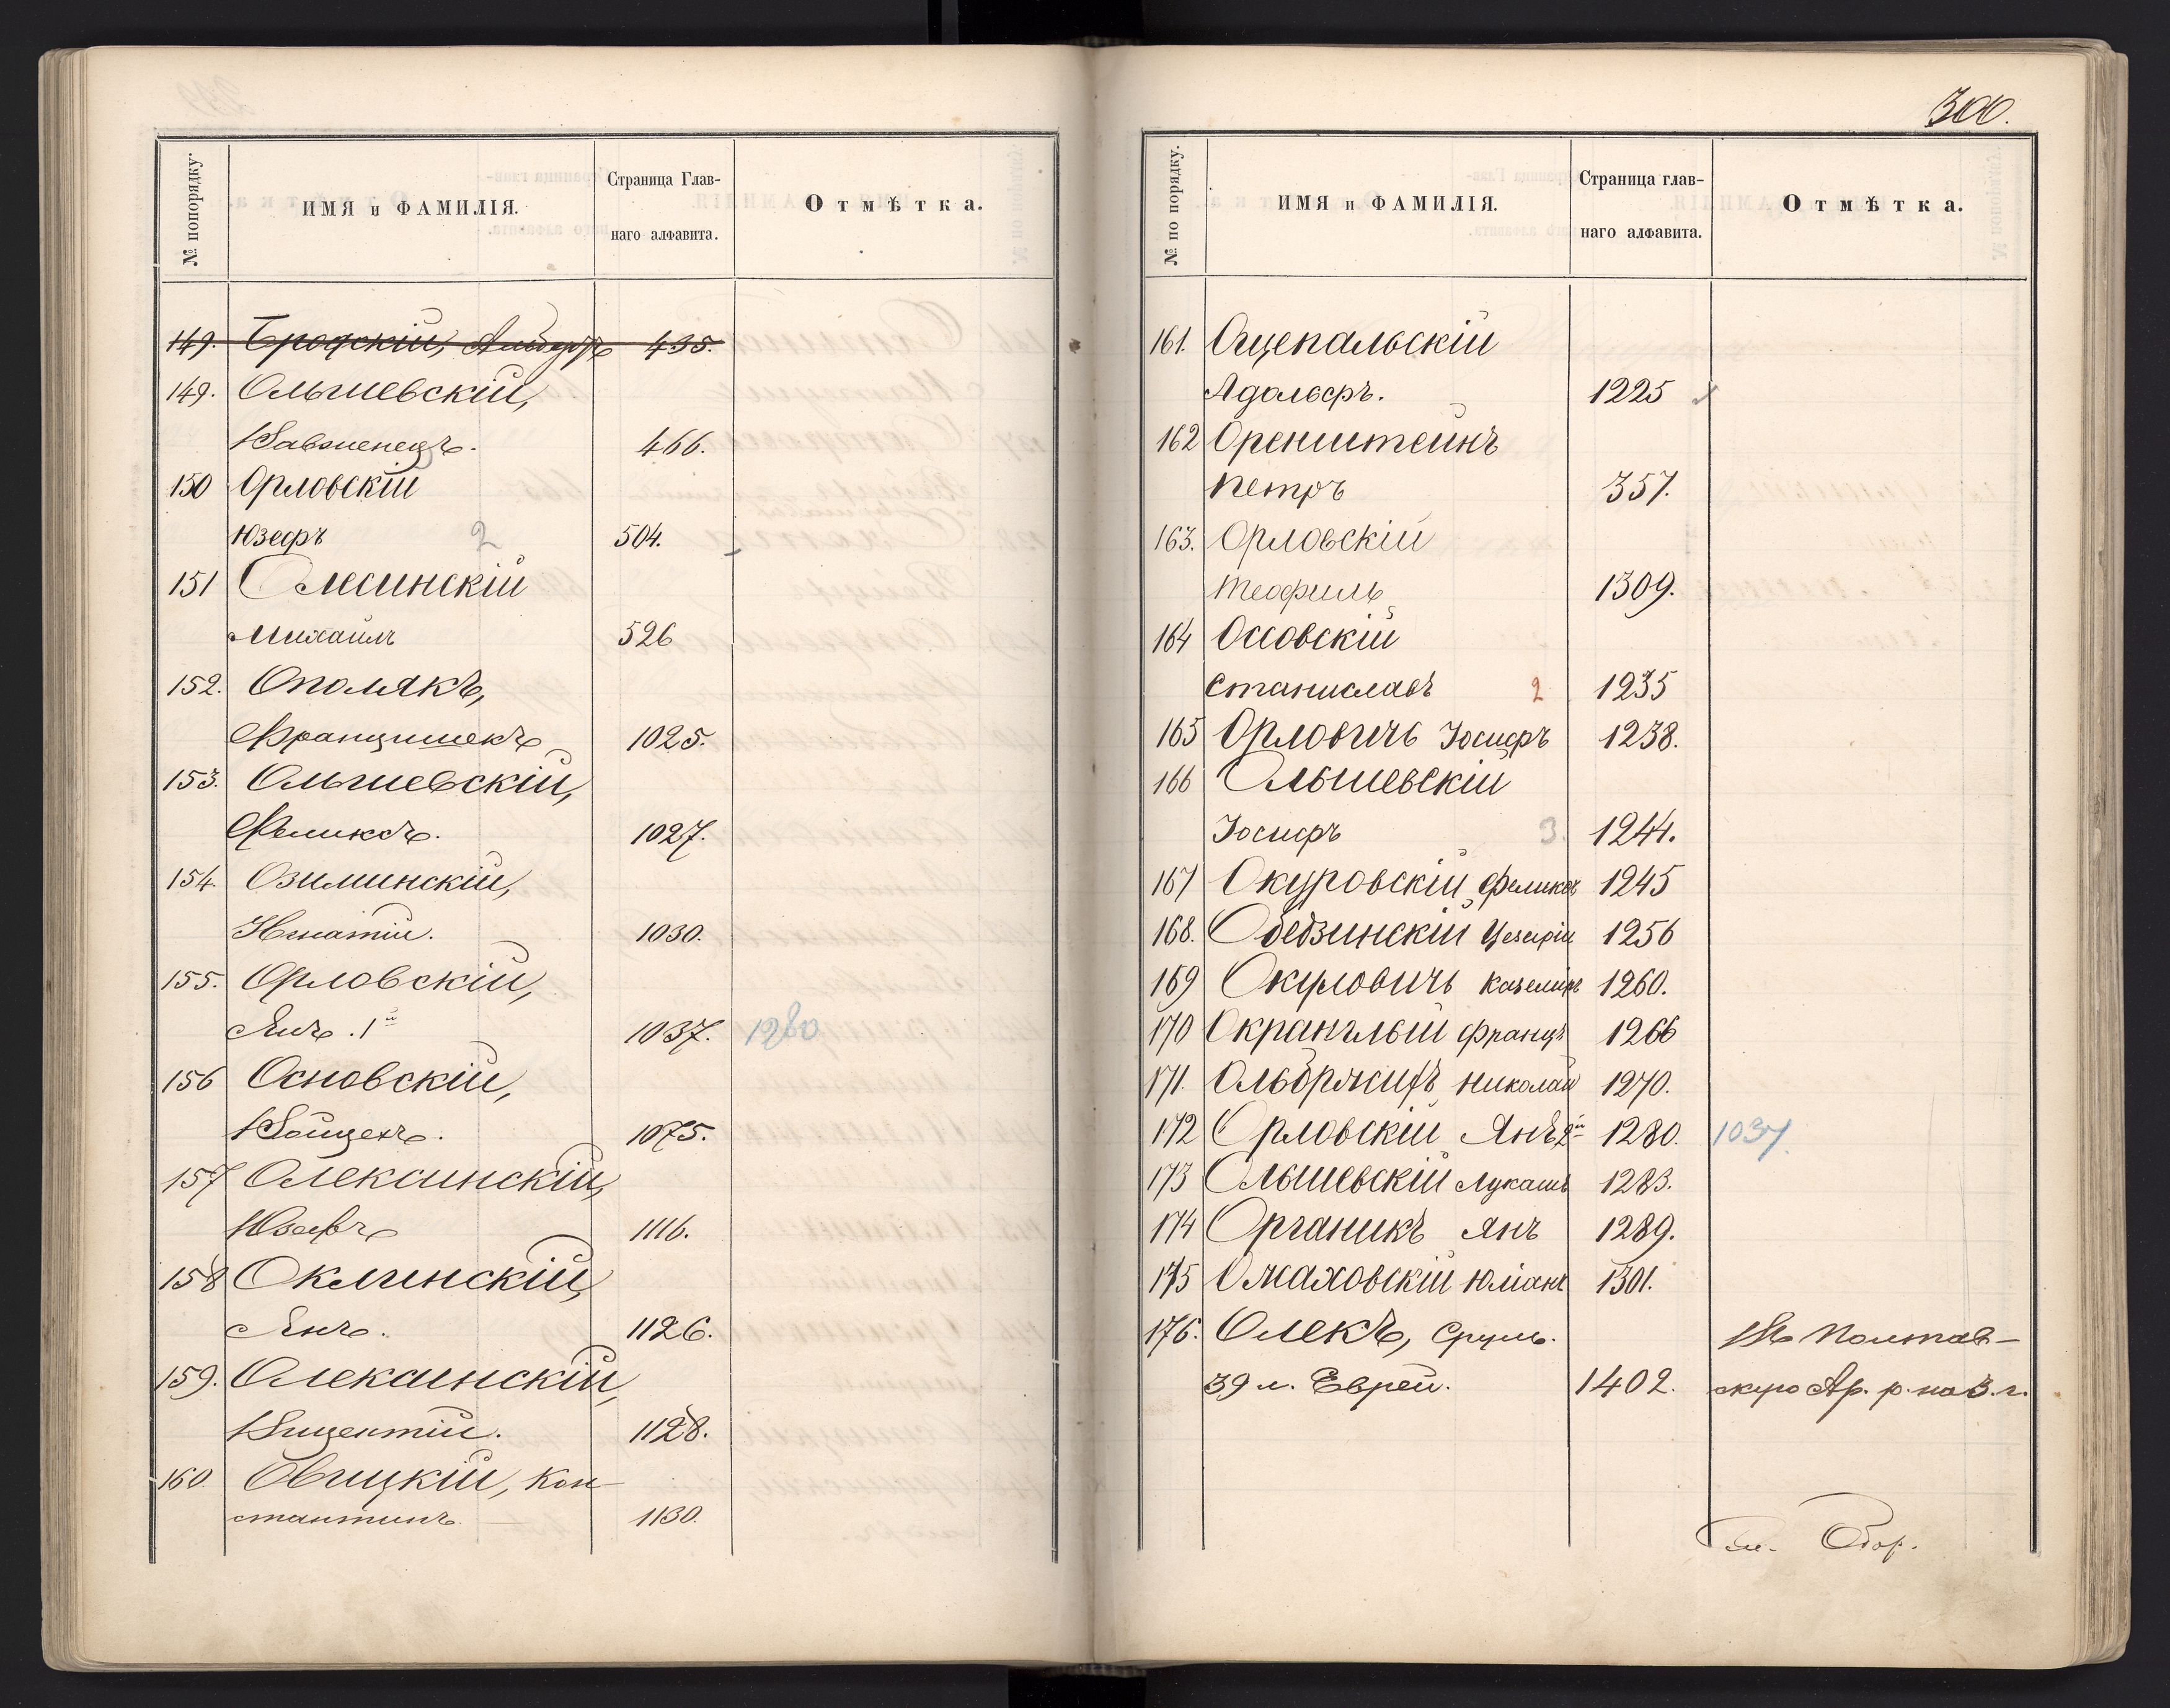 № попорядку.
ИМЯ и ФАМИЛІЯ.
Страница Глав-
наго алфавита.
Отмѣтка.
149. Бродскій, 435.
149. Ольшевскій,
Вавженецъ. 466.
150 Орловскій
Юзефъ 2 504.
151 Олесинскій
Михаилъ 526
152. Ополякъ,
Францишекъ 1025.
153. Ольшевскій,
Феликсъ. 1027.
154. Озиминскій,
Игнатій. 1030.
155. Орловскій,
Янъ. 1й 1037. 1280
156 Основскій,
Войцехъ. 1075.
157 Олексинскій,
Юзефъ 1116.
158 Оклинскій,
Янъ. 1126.
159. Олексинскій,
Вицентій. 1128.
160. Овицкій, Кон-
стантинъ. 1130.
300.
№ по порядку.
ИМЯ и ФАМИЛІЯ.
Страница глав-
наго алфавита.
Отмѣтка.
161. Оцепальскій
Адольфъ. 1225
162 Оренштейнъ
Петръ 357.
163. Орловскій
Теофиль 1309.
164 Оссовскій
Станиславъ 2 1235
165 Орловичъ Іосифъ 1238.
166 Ольшевскій
Іосифъ 3. 1244.
167 Окуровскій Феликсъ 1245
168. 1256
169 Окуловичъ 1260.
170 Окранглый Францъ 1266
171. Николай 1270.
172 Орловскій Янъ 2й 1280. 1037.
173 Ольшевскій Лукашъ 1283.
174 Органикъ Янъ 1289.
175 Омаховскій Юліанъ 1301.
176. Олекъ, Сруль. Въ Полтав-
39 л. Еврей. 1402. скую Ар. р. на 3. г.